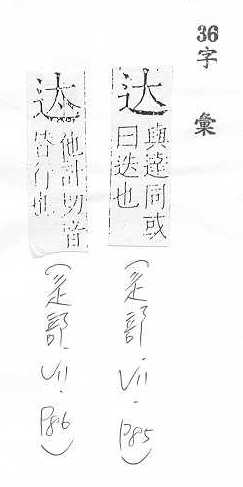 36
字彙
达 與達同或
曰迭也
(辵部.VII.P85)
迏 他計切音
替行也
(辵部.VII.P86)